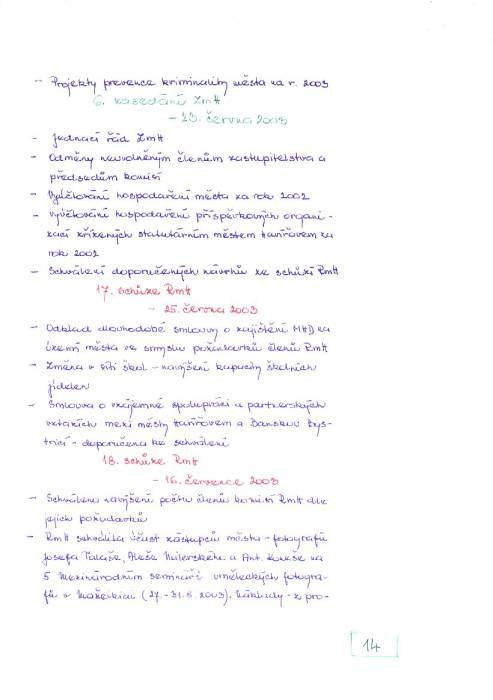 - Projekty prevence kriminality města na r. 2003
6. zasedání ZmH
- 23. června 2003
- Jednací řád ZmH
- Odměny neuvolněným členům zastupitelstva a
předsedům komisí
- Vyúčtování hospodaření města za rok 2002
- Vyúčtování hospodaření příspěvkových organi-
zací zřízených statutárním městem Havířovem za
rok 2002
- Schválení doporučených návrhů ze schůzí RmH
17. schůze RmH
- 25. června 2003
- Odklad dlouhodobé smlouvy o zajištění MHD na
území města ve smyslu požadavků členů RmH
- Změna v síti škol - navýšení kapacity školních
jídelen
- Smlouva o vzájemné spolupráci a partnerských
vztazích mezi městy Havířovem a Banskou Bys-
tricí - doporučena ke schválení
18. schůze RmH
- 16. července 2003
- Schváleno navýšení počtu členů komisí RmH dle
jejich požadavků
- RmH schválila účast zástupců města - fotografů
Josefa Aleše a Ant. na
5. Mezinárodním semináři uměleckých fotogra-
fů v Mažeikiai (27.-31.8.2003). Náklady - z pro-
14